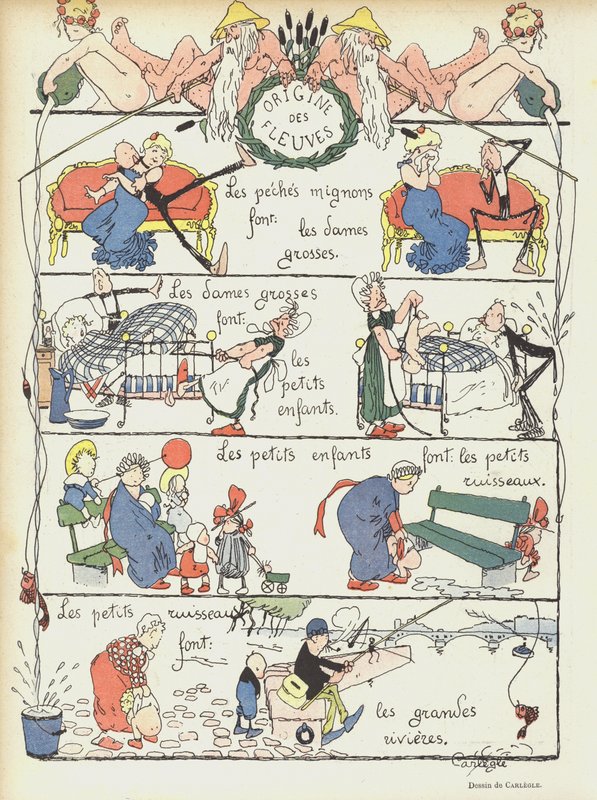 ORIGINE
DES
FLEUVES
Les péchés mignons
font:
les dames
grosses.
Les dames grosses
font:
les
petits
enfants.
Les petits enfants
font: les petits
ruisseaux.
Les petits ruisseaux
font:
les grandes
rivières.
Carlègle
Dessin de CARLÈGLE.